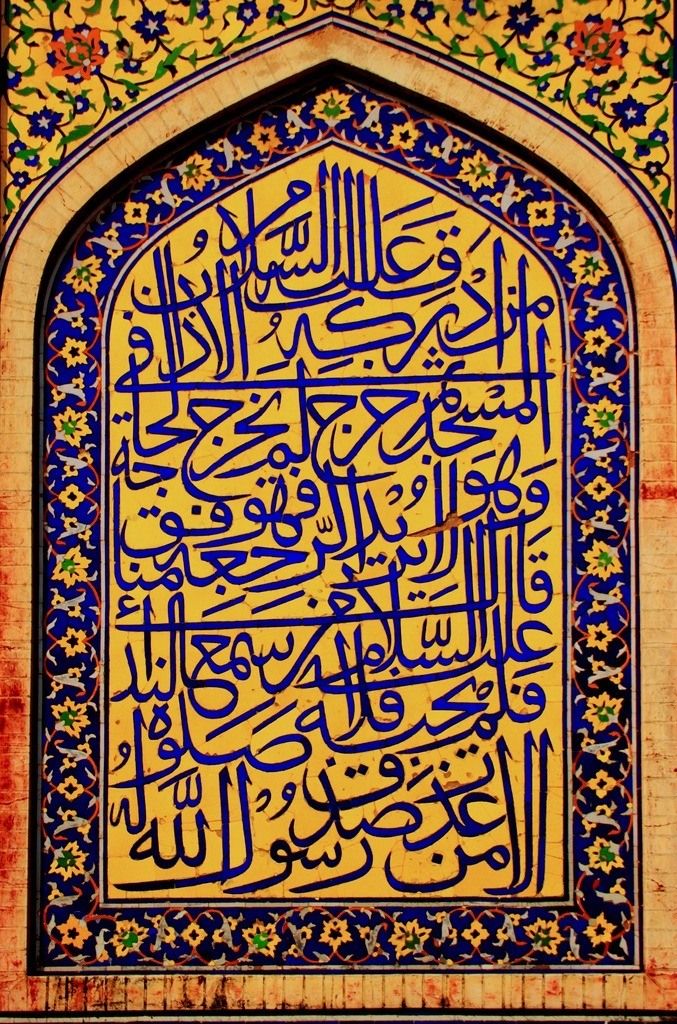 قال عليه السلام
من ادركه الاذان في
المسجد ثم خرج لم يخرج لحاجة
وهو لا يريد الرجعة فهو منافق
قال عليه السلام من سمع النداء
فلم يجبه فلا صلوة له
الا من عذر صدق رسول الله